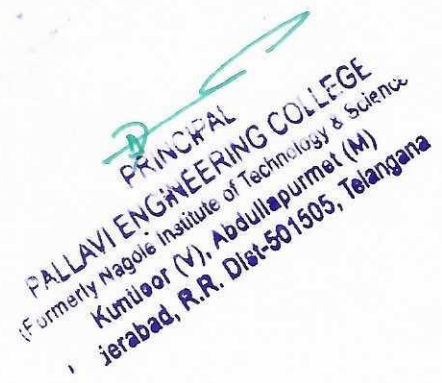 PRINCIPAL
PALLAVI ENGINEERING COLLEGE
(Formerly Nagole Institute of Technology & Science
Kuntloor (V), Abdullapurmet (M)
ierabad, R.R. Dist-501505, Telangana